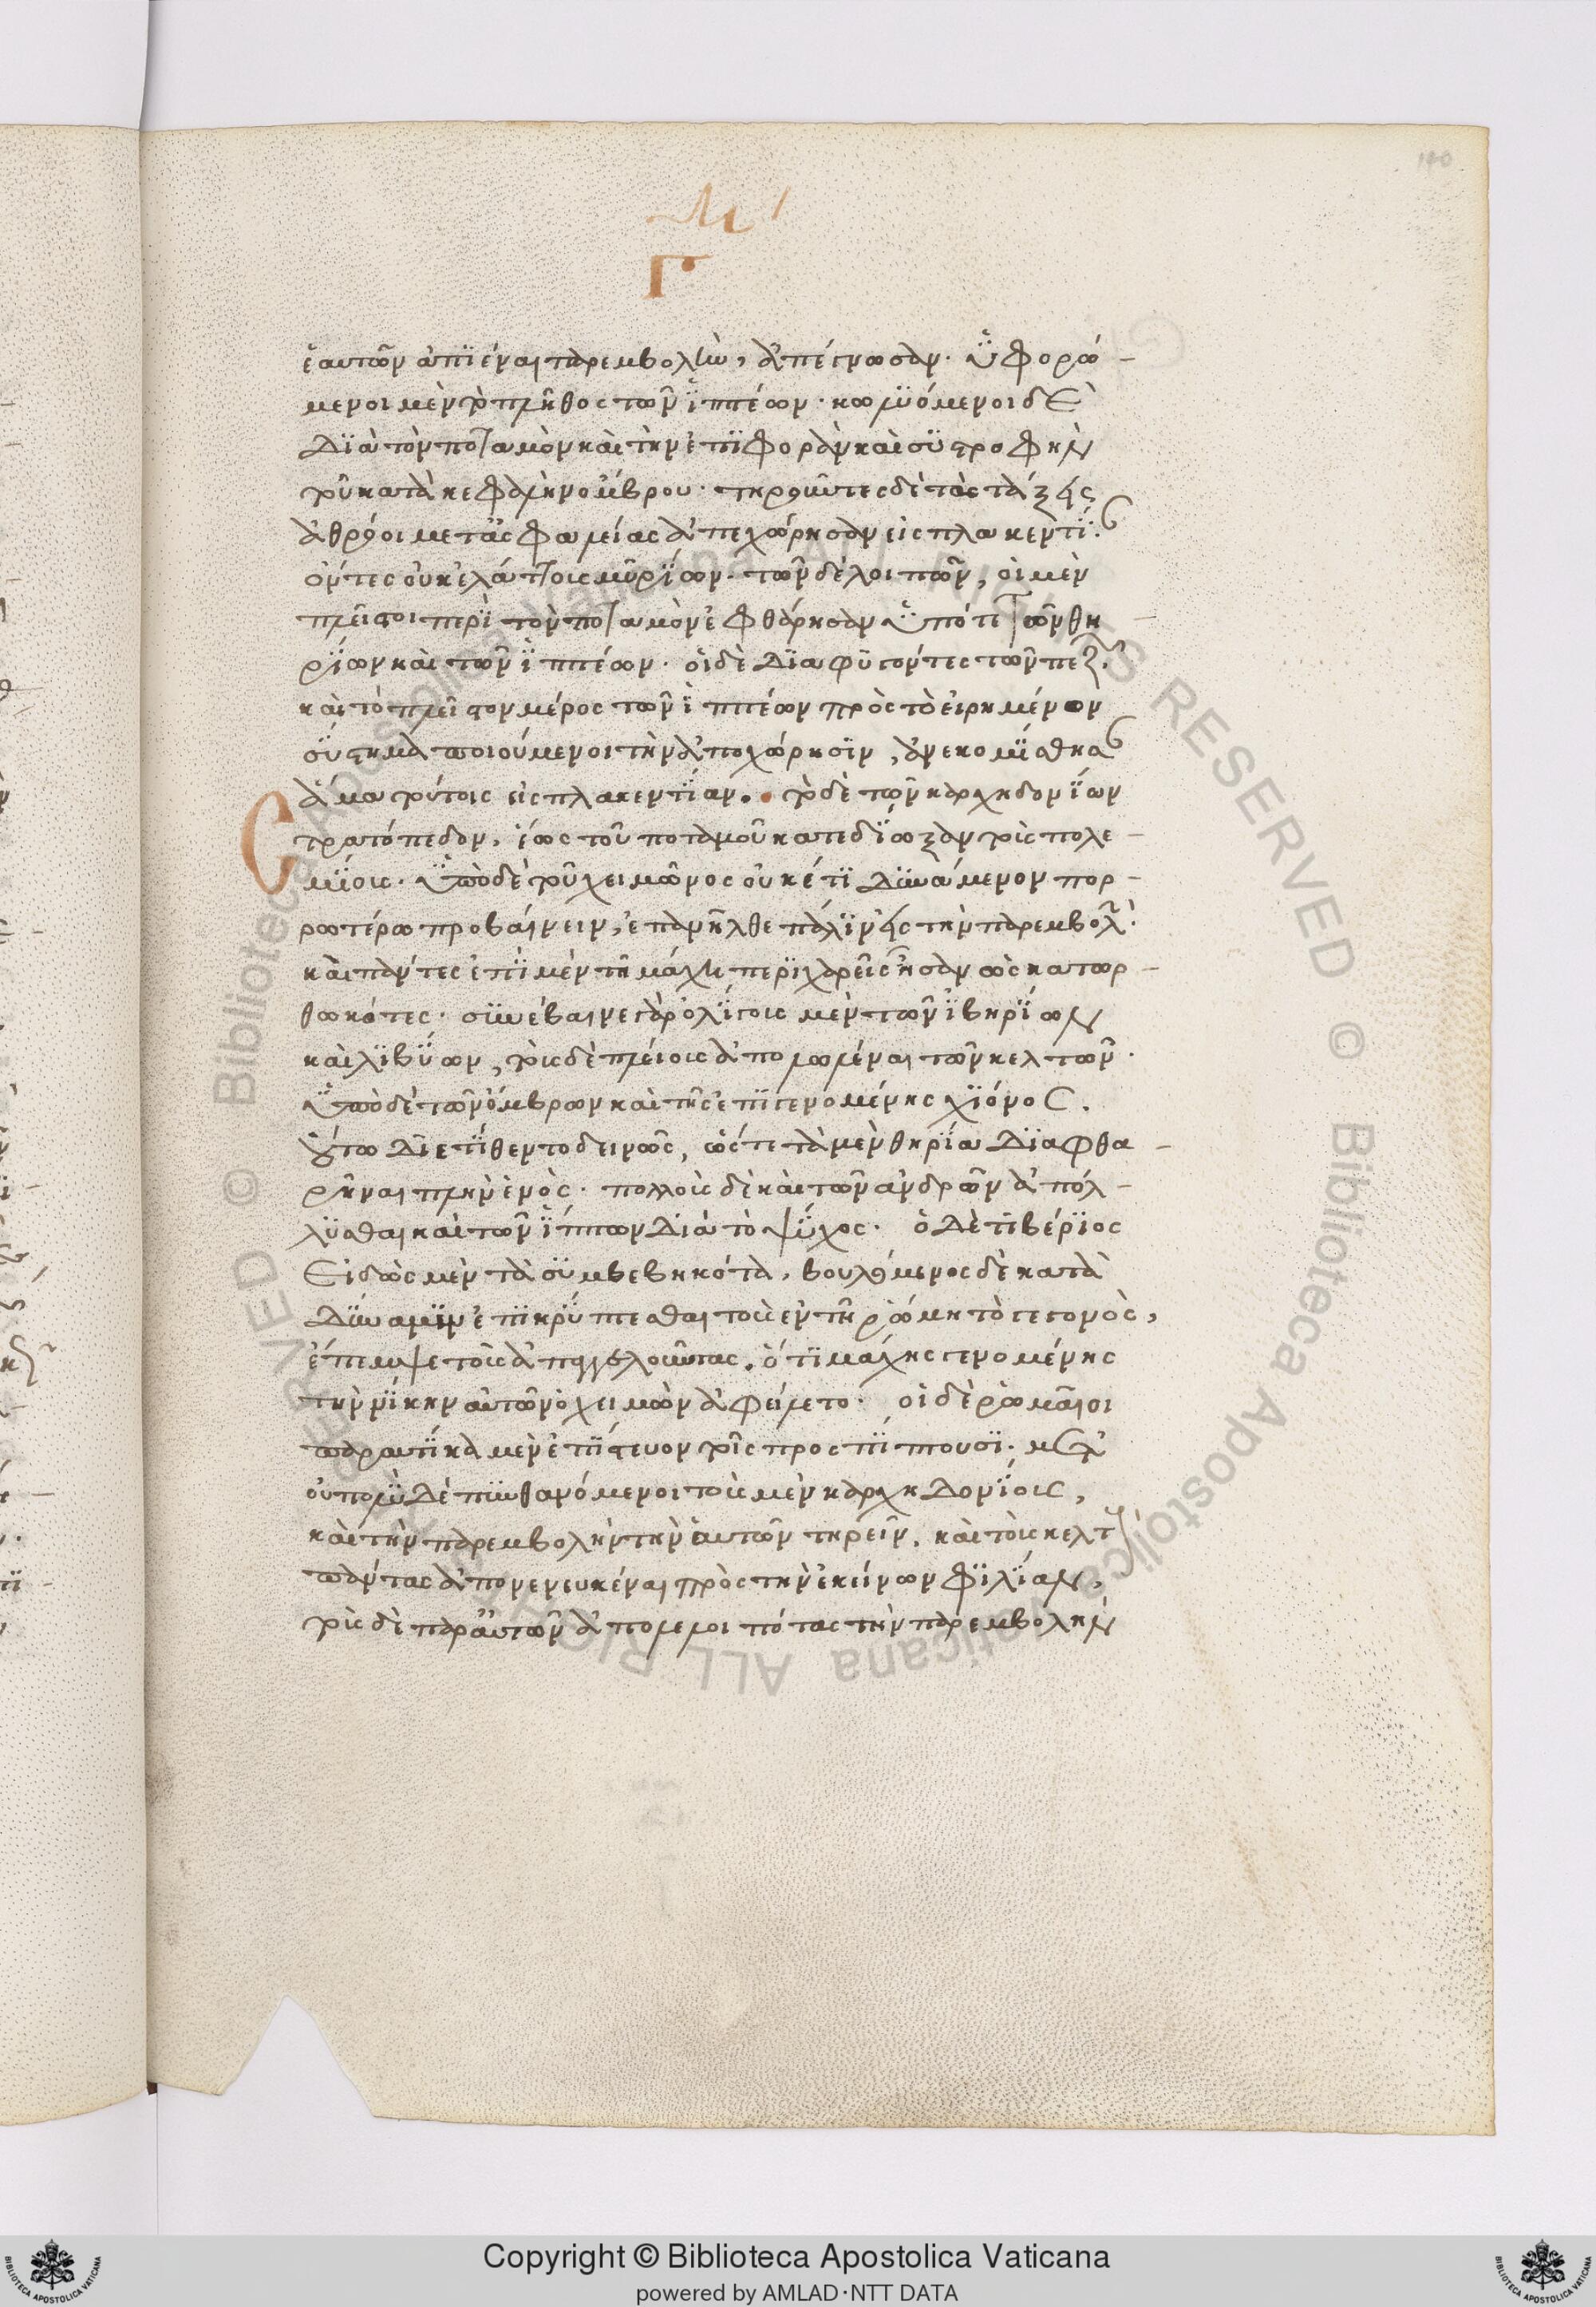 140
Γ
ἑαυτῶν ἀπϊέναι παρεμβολὴν, ἀπέγνωσαν. ὑφορώ-
μενοι μὲν τὸ πλῆθος τῶν ἱππέων. κωλϋόμενοι δὲ
δϊὰ τὸν ποταμὸν καὶ τὴν ἐπϊφορὰν καὶ συστροφὴν
τοῦ κατὰ κεφαλὴν ὄμβρου. τηροῦντες δὲ τὰς τάξεις
ἀθρόοι μετὰ ἀσφαλείας ἀπεχώρησαν εἰς πλακεντϊ.
ὄντες οὐκ ἐλάττους μυρίων. τῶν δὲ λοιπῶν, οἱ μὲν
πλεῖστοι περὶ τὸν ποταμὸν ἐφθάρησαν ὑπό τε τῶν θη
ρΐων καὶ τῶν ἱππέων. οἱ δὲ δϊαφυγόντες τῶν πεζῶν
καὶ τὸ πλεῖστον μέρος τῶν ἱππέων πρὸς τὸ εἰρημένων
σύστημα ποιούμενοι τὴν ἀποχώρησϊν, ἀνεκομίσθησαν
ἅμα τούτοις εἰς πλακεντίαν. τὸ δὲ τῶν καρχηδονΐων
Στρατόπεδον, ἕως τοῦ ποταμοῦ καταδϊῶξαν τοὺς πολε-
μίους. ὑπὸ δὲ τοῦ χειμῶνος οὐκέτϊ δϋνάμενον πορ-
ρωτέρω προβαίνειν, ἐπανῆλθε πάλϊν εἰς τὴν παρεμβολ.
καὶ πάντες ἐπϊ μὲν τῇ μάχῃ περϊχαρεῖς ἦσαν ὡς κατωρ-
θωκότες. συνέβαινε γὰρ ὀλίγους μὲν τῶν ἰβηρίων
καὶ λϊβύων, τοὺς δὲ πλείους ἀπολωλέναι τῶν κελτῶν.
ὑπὸ δὲ τῶν ὄμβρων καὶ τῆς ἐπϊγενομένης χϊόνος.
οὕτω δϊετίθεντο δεινῶς, ὥστε τὰ μὲν θηρία δϊαφθα-
ρῆναι πλὴν ἑνὸς. πολλοὺς δὲ καὶ τῶν ἀνδρῶν ἀπόλ-
λϋσθαι καὶ τῶν ἵππων δϊὰ τὸ ψύχος. ὁ δὲ τϊβέρϊος
εἰδὼς μὲν τὰ συμβεβηκότα, βουλόμενος δὲ κατὰ
δύναμϊν ἐπϊκρύπτεσθαι τοὺς ἐν τῇ ῥώμῃ τὸ γεγονὸς,
ἔπεμψε τοὺς ἀπαγγελοῦντας, ὅτϊ μάχης γενομένης
τὴν νίκην αὐτῶν ὁ χειμὼν ἀφείλετο. οἱ δὲ ῥωμαῖοι
παραυτίκα μὲν ἐπίστευον τοῖς προσπίπτουσϊ. μετ
οὐ πολὺ δὲ πυνθανόμενοι τοὺς μὲν καρχηδονίους,
καὶ τὴν παρεμβολὴν τὴν ἑαυτῶν τηρεῖν, καὶ τοὺς κελτ
πάντας ἀπονενευκέναι πρὸς τὴν ἐκείνων φϊλίαν,
τοὺς δὲ παρ αὑτῶν ἀπολελοιπότας τὴν παρεμβολὴν
Copyright © Biblioteca Apostolica Vaticana
powered by AMLAD·NTT DATA